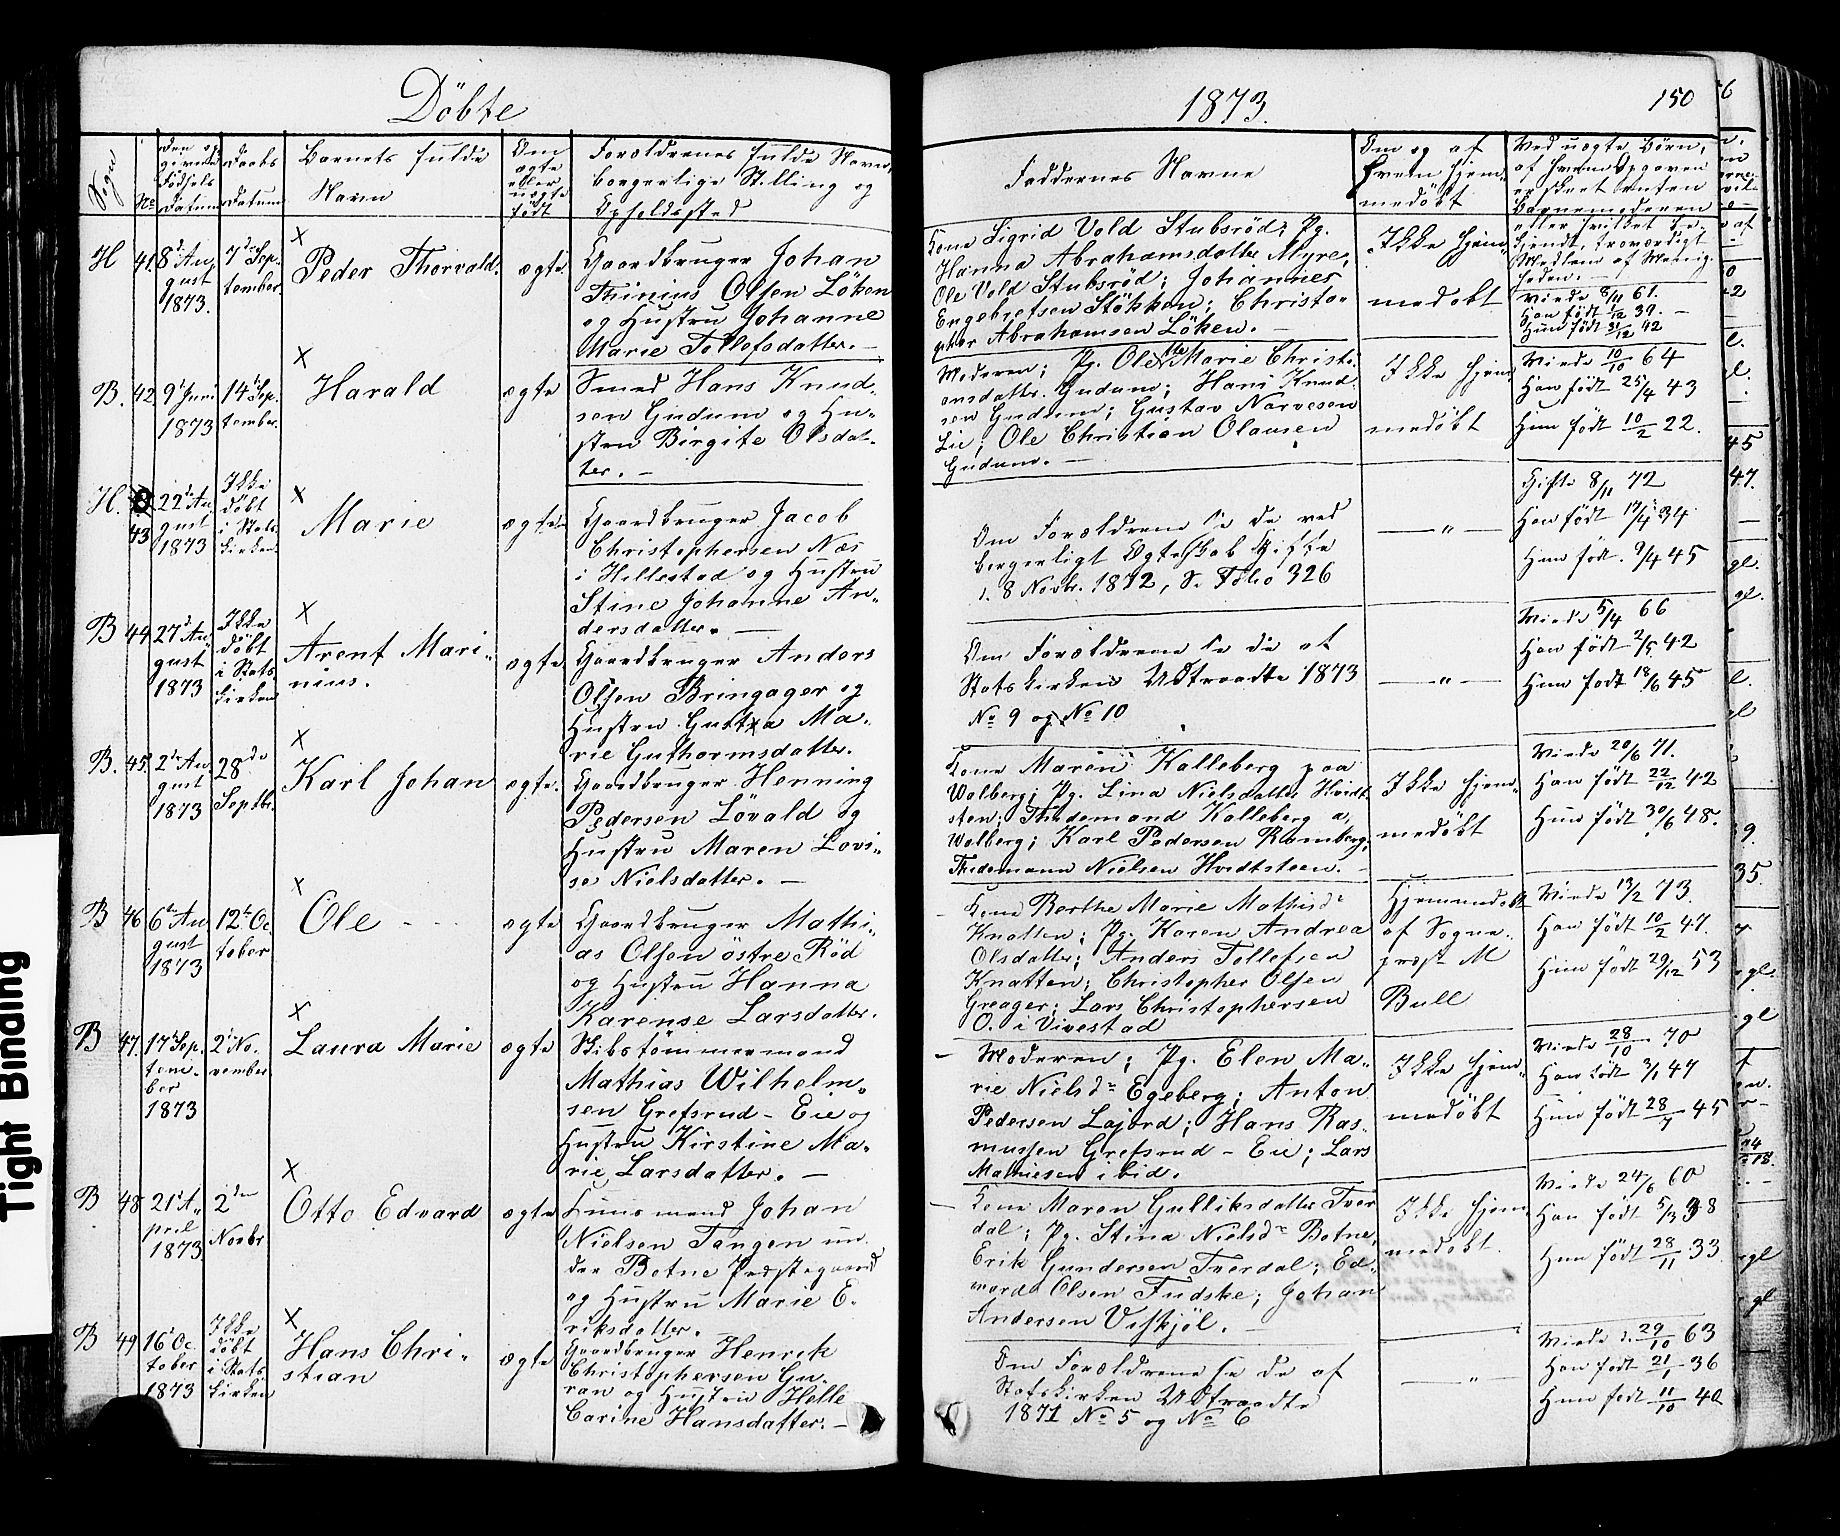 Döbte
1873.
150
Sogn
No
Den op
givne
Födsels
Datum
Daabs
Datum
Barnets fulde
Navn
Om
ægte
eller
uægte
født
Forældrenes fulde Navn,
borgerlige Stilling og
Opholdssted
Faddernes Navne
Om og af
hvem hjem-
medøbt
Ved uægte Børn,
af hvem Opgaven
er skeet enten
Barnemoderen
eller hvilket be-
kjendt, troværdigt
Medlem af Menig-
heden.
H
41.
8d Au
gust
1873.
7de Sep.
tember.
Peder Thorvald.
ægte.
Gaardbruger Johan
Thinius Olsen Löken
og Hustru Johanne
Marie Tollefsdatter. —
Kone Sigrid Vold Stubsröd; Pg.
Hanna Abrahamsdatter Myre,
Ole Vold Stubsröd; Johannes
Engebretsen Stökken; Christo-
pher Abrahamsen Löken. —
Ikke hjem-
medøbt
Viede 8/11 61.
Han født 5/12 39. —
Hun født 31/12 42
B.
42.
9d Juni
1873
14d Sep.
tember.
Harald
ægte
Smed Hans Knud-
sen Gudum og Hu-
stru Birgite Olsdat-
ter. —
Moderen; Pg. Ole Marie Christi-
ansdatter Gudum; Hans Knud-
sen Gudum; Gustav Narvesen
Lie; Ole Christian Olausen
Gudum. —
Ikke hjem-
medøbt
Viede 10/10 64
Han født 25/4 43
Hun født 10/2 22.
H.
43
22d Au
gust
1873
Ikke
døbt
i Stats
kirken
Marie
ægte.
Gaardbruger Jacob
Christophersen Næs
i Hillestad og Hustru
Stine Johanne An-
dersdatter. —
Om Forældrene se de ved
borgerligt Ægteskab Gifte
1. 8 Novbr. 1872, S. Folio 326
— " —
Gifte 8/11 72
Han født 17/4 34.
Hun født. 9/4 45
B
44
27d Au
gust
1873
Ikke
døbt
i Stats
kirken
Arent Mari-
nius.
ægte
Gaardbruger Anders
Olsen Bringager og
Hustru Gutta Ma-
rie Guthormsdatter.
Om Forældrene se de af
Statskirken Udtraadte 1873
No 9 og No 10
— " —
Viede 5/4 66
Han født 2/5 42
Hun født 18/6 45
B.
45.
2d Au
gust
1873
28de
Septbr.
Karl Johan
ægte.
Gaardbruger Henning
Pedersen Lövald og
Hustru Maren Lovi-
se Nielsdatter. —
Kone Maren Kalleberg paa
Wolberg; Pg. Lina Nielsdatter Hvidt
sten; Thidemand Kalleberg a,
Wolberg; Karl Pedersen Ramberg;
Thidemann Nielsen Hvidtsteen. —
Ikke hjem-
medøbt
Viede 20/6 71.
Han født 22/12 42
Hun født 30/6 48.
B
46
6d Au
gust
1873
12d Oc
tober
Ole
ægte
Gaardbruger Mathi-
as Olsen östre Röd
og Hustru Hanna
Karense Larsdatter.
Kone Berthe Marie Mathisd
Knatten; Pg. Karen Andrea
Olsdatter; Anders Tollefsen
Knatten; Christopher Olsen
Greager; Lars Christophersen
O. i Vivestad
Hjemmedøbt
af Sogne-
præst M
Bull
Viede 13/2 73.
Han født 10/2 47.
Hun født 29/12 53
B
47.
17d Sep.
tem-
ber
1873
2d No-
vember
Laura Marie
ægte
Skibstömmermand
Mathias Wilhelm-
sen Grefsrud-Eie og
Hustru Kirstine Ma-
rie Larsdatter. —
Moderen; Pg. Elen Ma-
rie Nielsd Egeberg; Anton
Pedersen Lajord; Hans Ras-
mussen Grefsrud-Eie; Lars
Mathiesen ibid.
Ikke hjem-
medøbt
Viede 28/10 70
Han født 3/1 47
Hun født 28/7 45
B
48
21d A-
pril
1873.
2den
Novbr
Otto Edvard
ægte
Huusmand Johan
Nielsen Tangen un-
der Botne Præstegaard
og Hustru Marie E-
riksdatter.
Kone Maren Gulliksdatter Tver
dal; Pg. Stina Nielsd Botne,
Erik Gundersen Tverdal; Ed-
vard Olsen Fudske; Johan
Andersen Viskjöl. —
Ikke hjem-
medøbt.
Viede 24/6 60
Han født 5/3 38
Hun født 28/11 33
B
49
16d Oc
tober
1873
Ikke
døbt
i Stats
kirken
Hans Chri-
stian
ægte
Gaardbruger Henrik
Christophersen Gu-
ran og Hustru Helle
Carine Hansdatter. —
Om Forældrene se de af
Statskirken Udtraadte
1871 No 5 og No 6
— " —
Viede d. 29/10 63
Han født 21/1 36
Hun født 11/10 40
Tight Binding